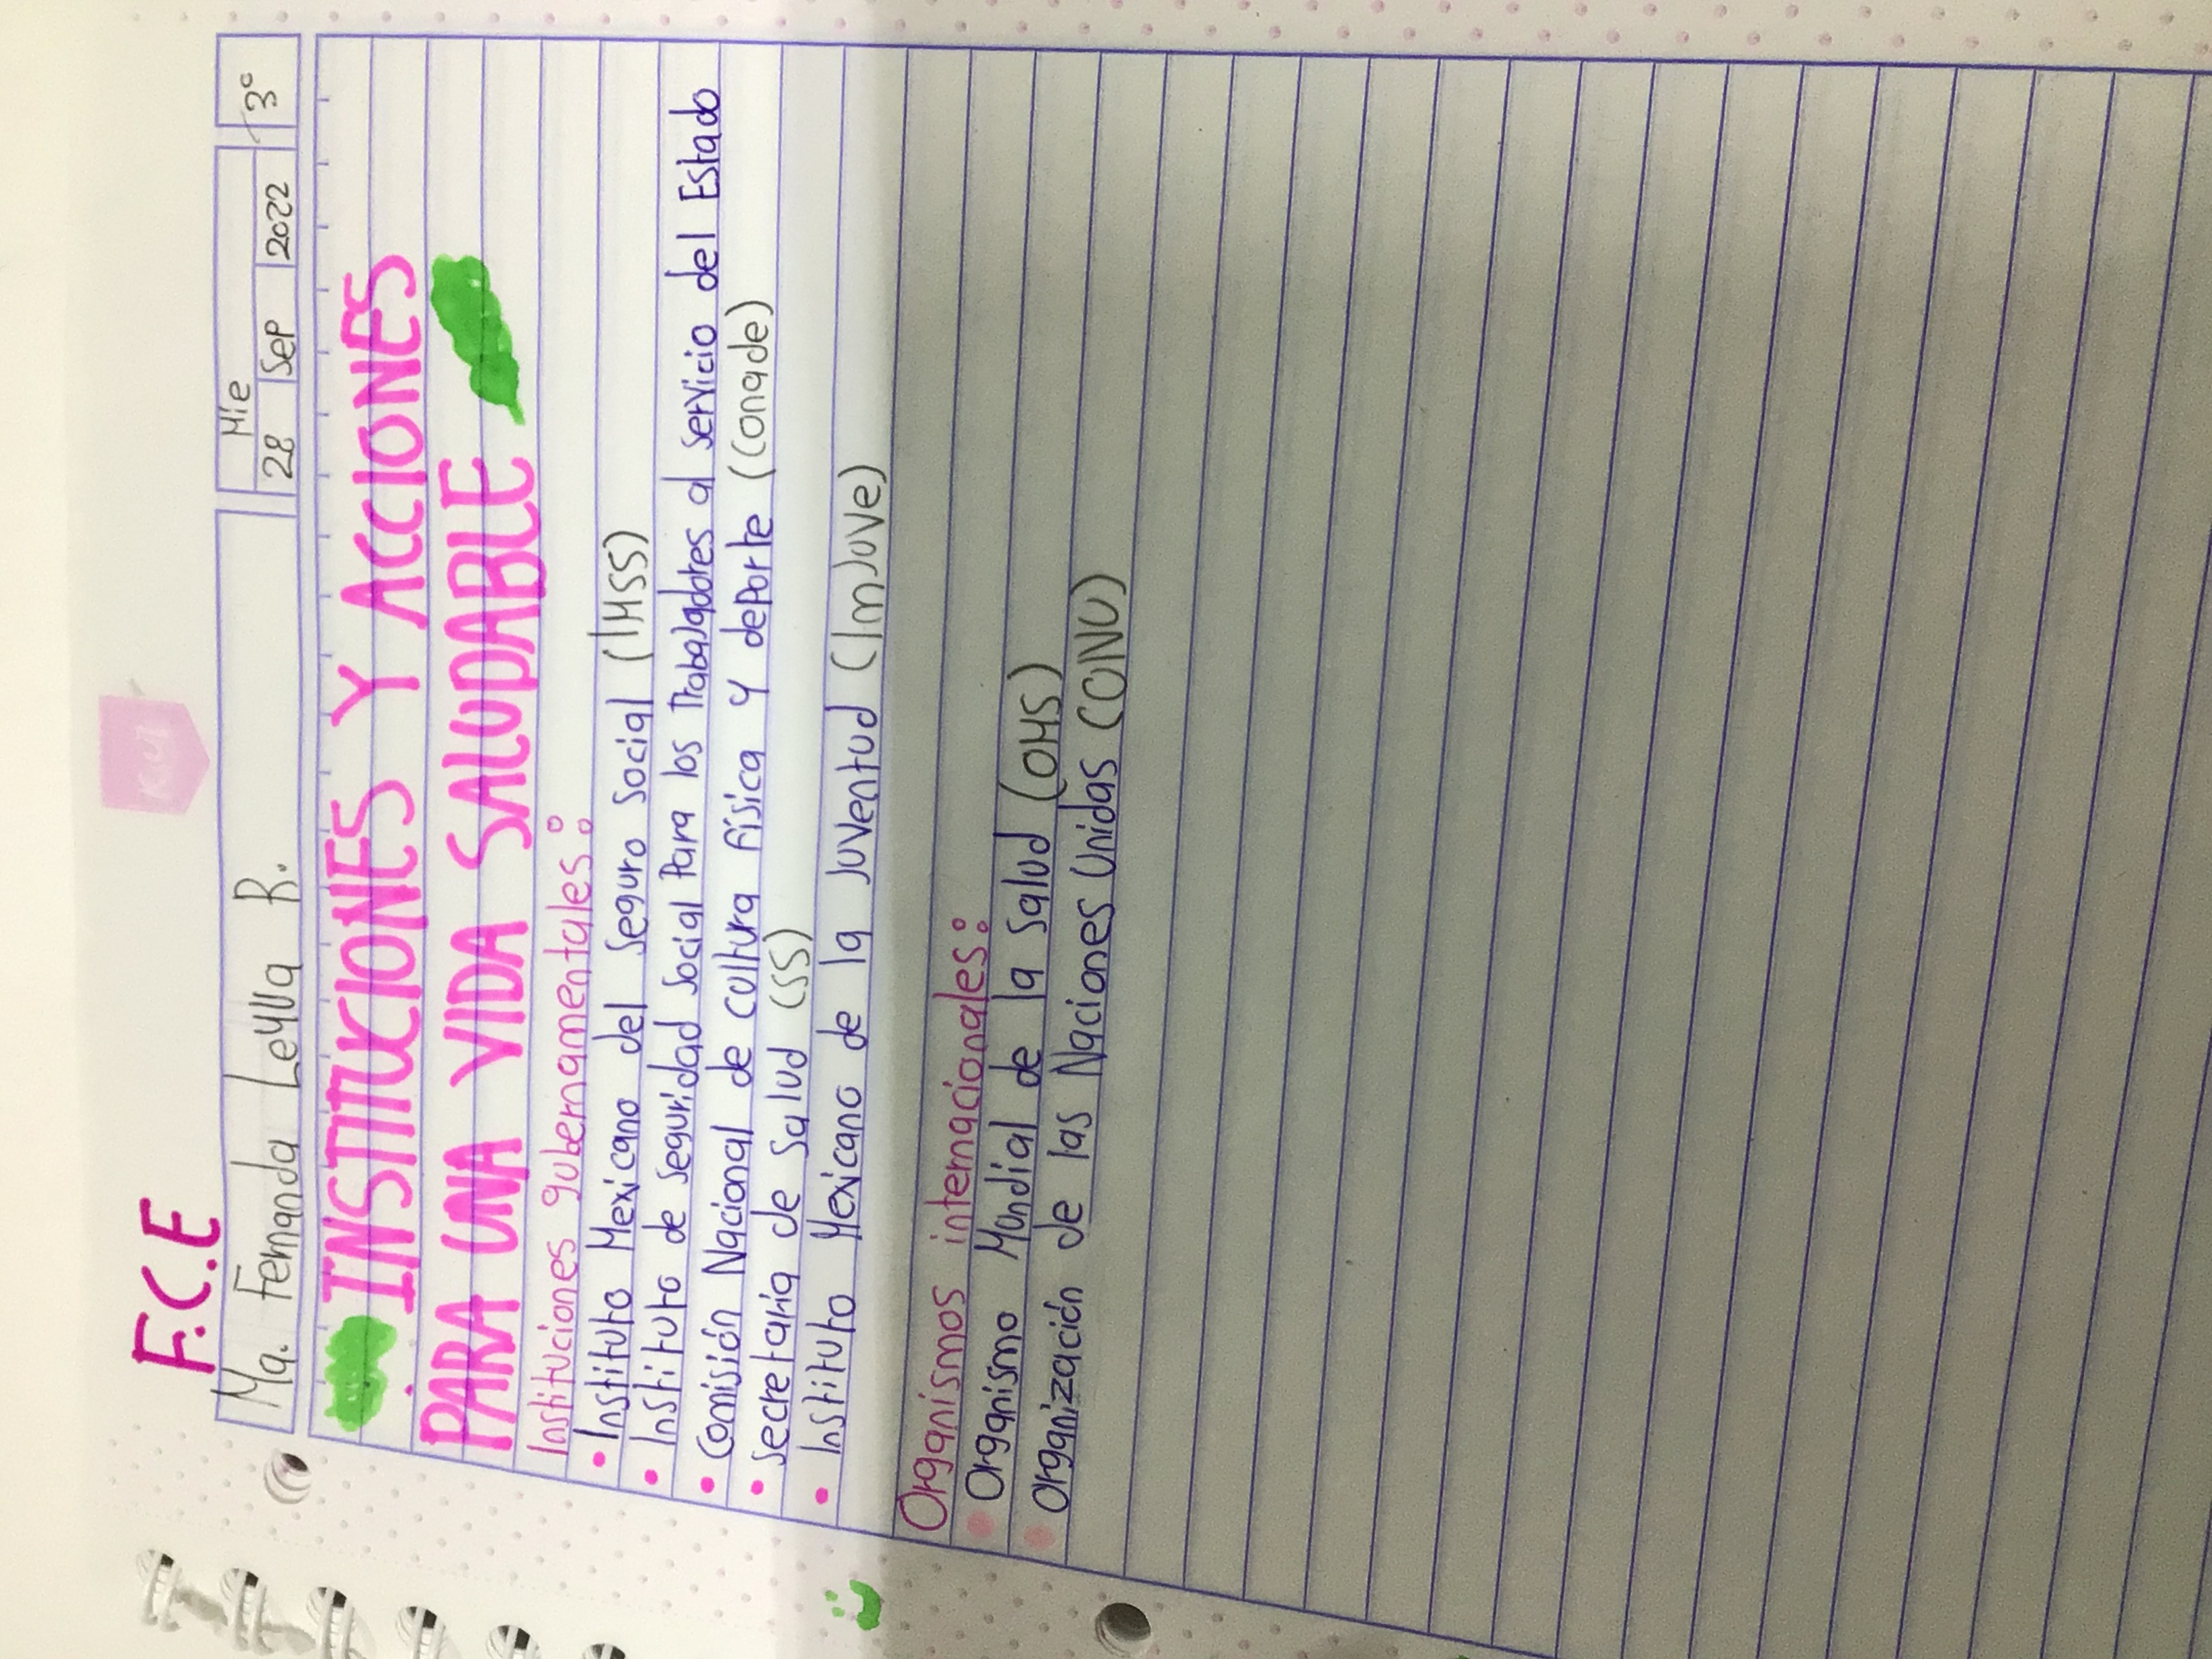 F.C.E
Ma. Fernanda Leyva R.
Mie
28 Sep 2022
3°
INSTITUCIONES Y ACCIONES
PARA UNA VIDA SALUDABLE
Instituciones gubernamentales:
• Instituto Mexicano del Seguro Social (IMSS)
• Instituto de seguridad social Para los Trabajadores al servicio del Estado
• Comisión Nacional de cultura física y deporte (Conade)
• Secretaría de Salud (SS)
• Instituto Mexicano de la Juventud (ImJuve)
Organismos internacionales:
• Organismo Mundial de la Salud (OMS)
• Organización de las Naciones Unidas (ONU)